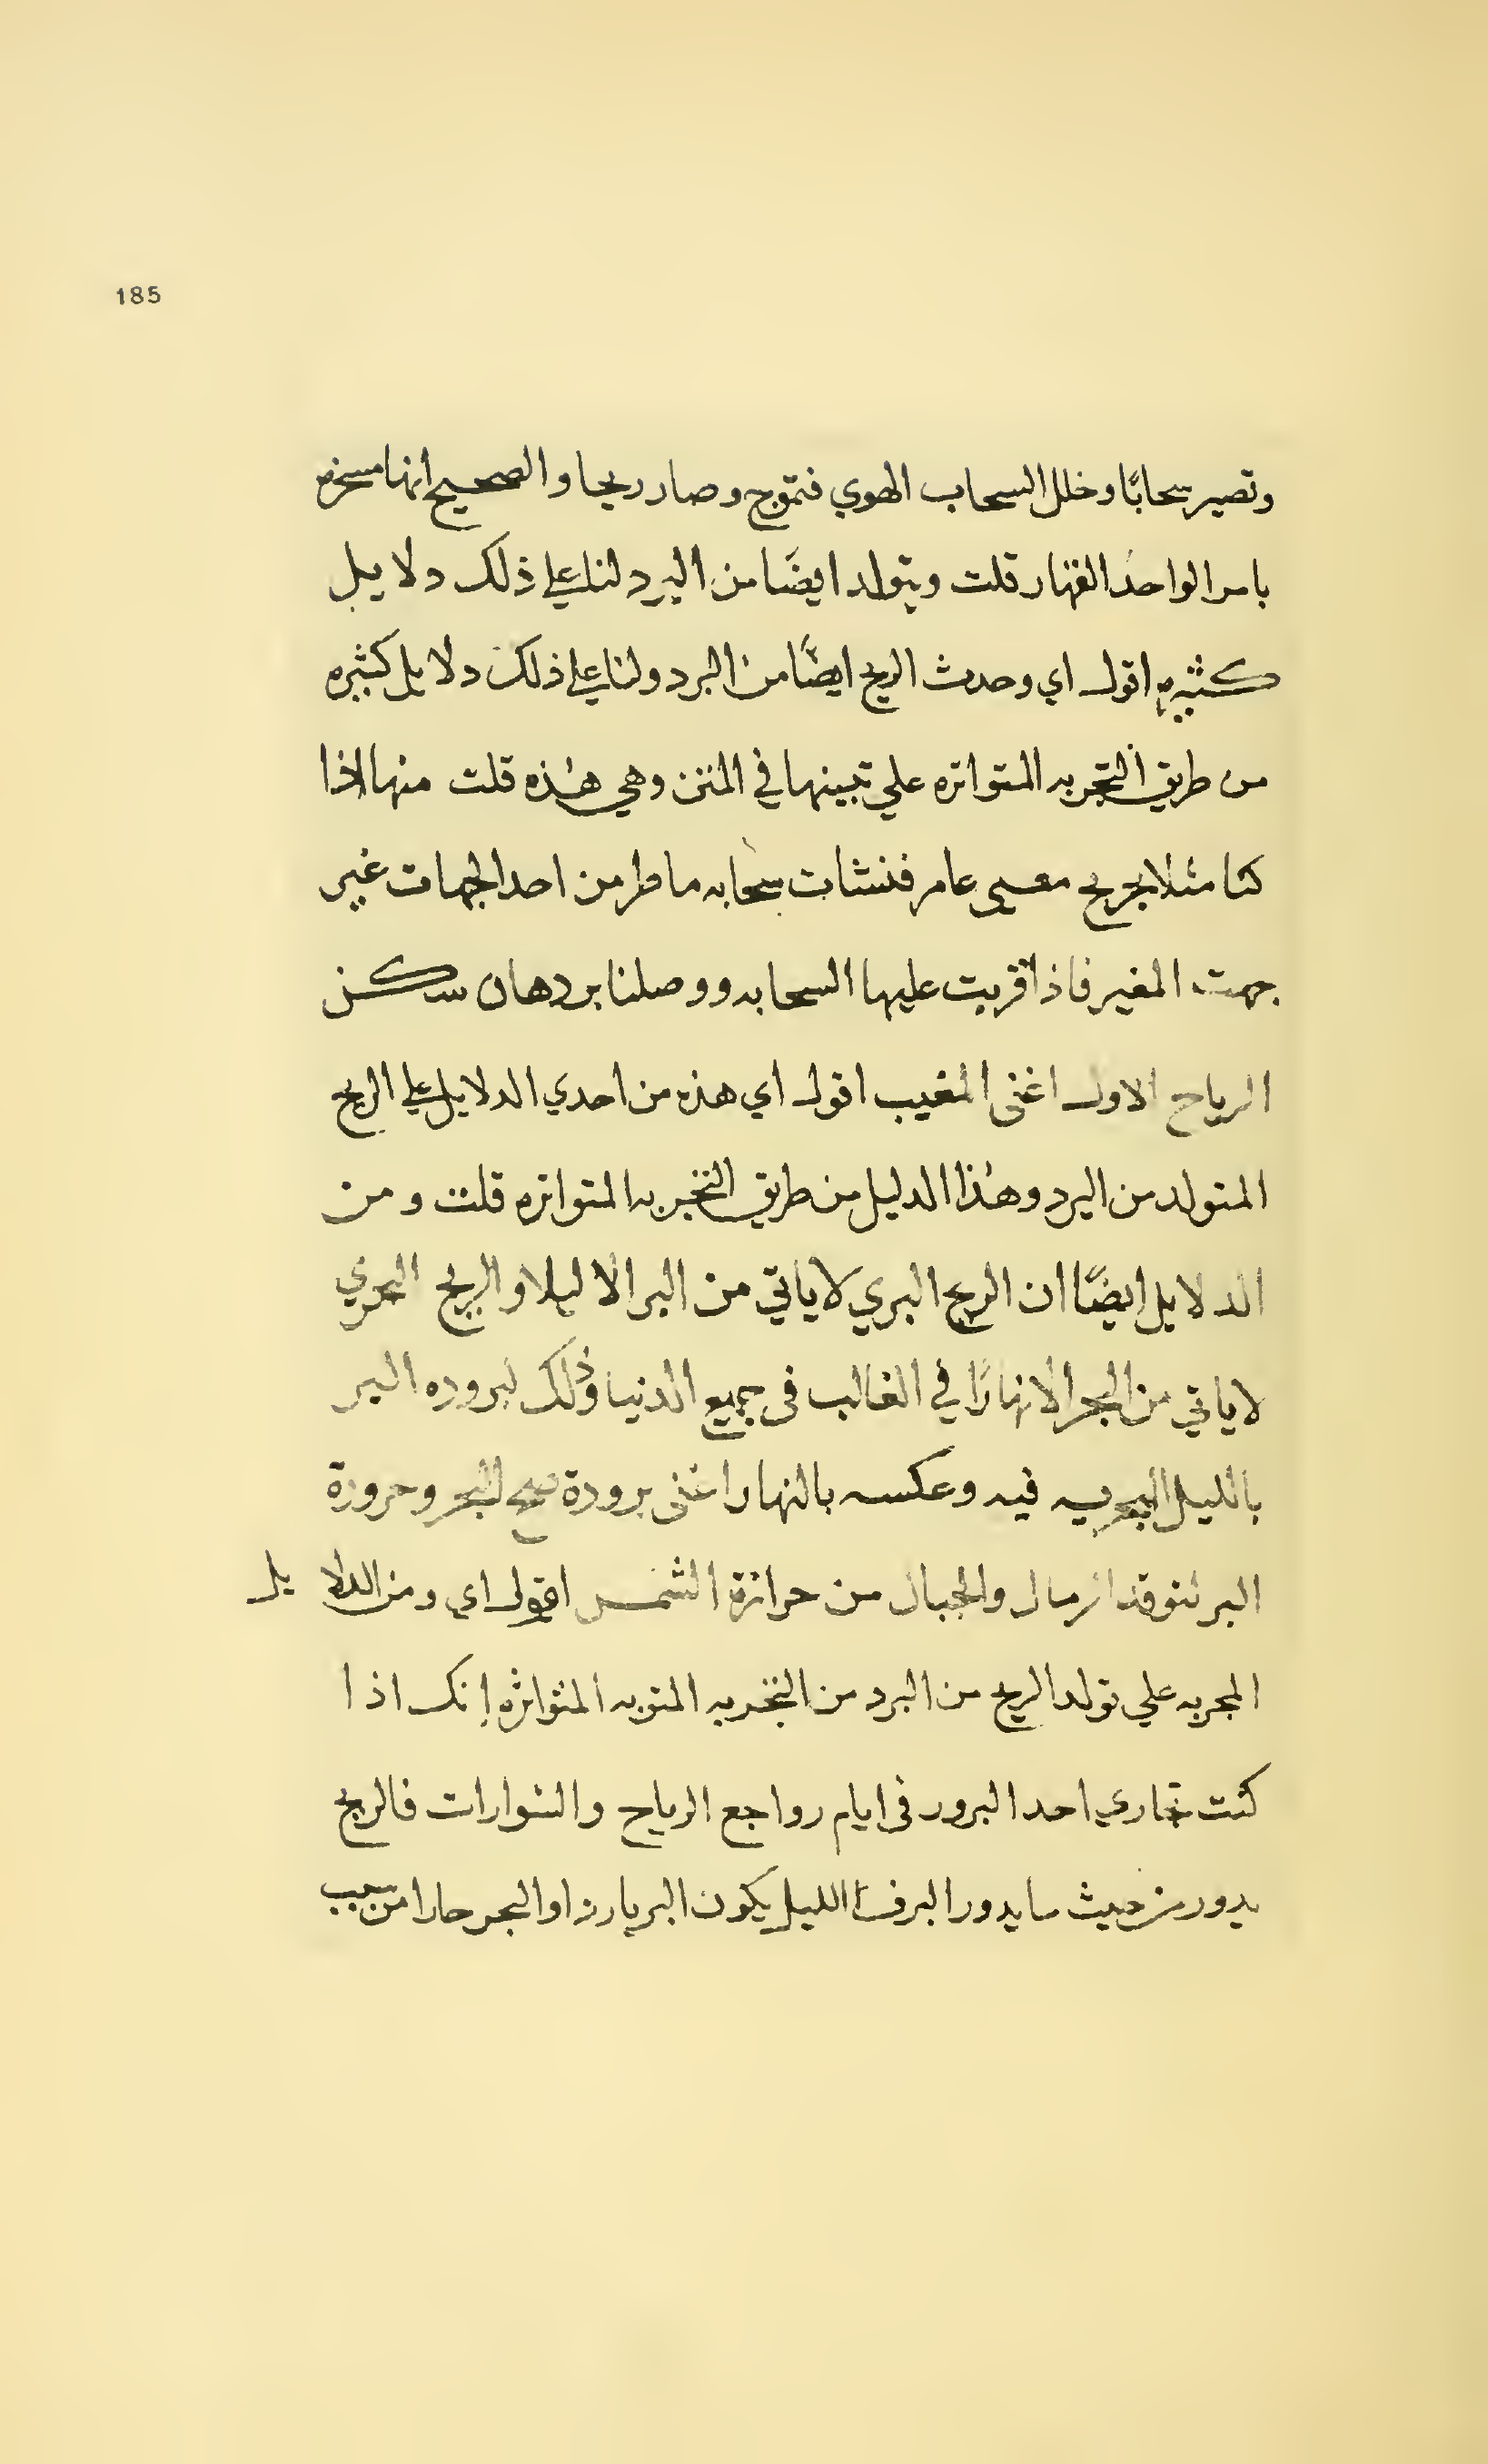 185
وتصير سحابًا وخلل السحاب الهوي فتموج وصار ريحا والصحيح انها مسخره
بامر الواحد القهار قلت ويتولد ايضًا من البرد لنا علي ذلك دلايل
كثيره اقول اي وحدث الريح ايضًا من البرد ولنا علي ذلك دلايل كثيره
من طريق التجربه المتواتره علي تبينها في المتن وهي هذه قلت منها اذا
كنا مثلا بجريح معسى عامر فنشات سحابه ماطر من احد الجهات غير
جهت المغير فاذا قربت عليها السحابه ووصلنا بردها ن سكن
الرياح الاول اغنى المغيب اقول اي هذه من احدي الدلايل علي الريح
المتولد من البرد وهذا الدليل من طريق التجربه المتواتره قلت ومن
الدلايل ايضًا ان الريح البري لا ياتي من البر الا ليلا والريح البحري
لا ياتي من البحر الا نهارًا في الغالب في جميع الدنيا وذلك لبروده البر
بالليل فيه وعكسه بالنهار اغنى برودة البحر وحرورة
البر لتوقد الرمال والجبال من حرارة الشمس اقول اي ومن الدلايل
المجربه علي تولد الريح من البرد من التجربه المتواتره إنك اذا
كنت تجاري احد البرور في ايام رواجع الرياح والشوارات فالريح
يدور من حيث ما يدور البر في الليل يكون البر باردا والبحر حارا من سبب